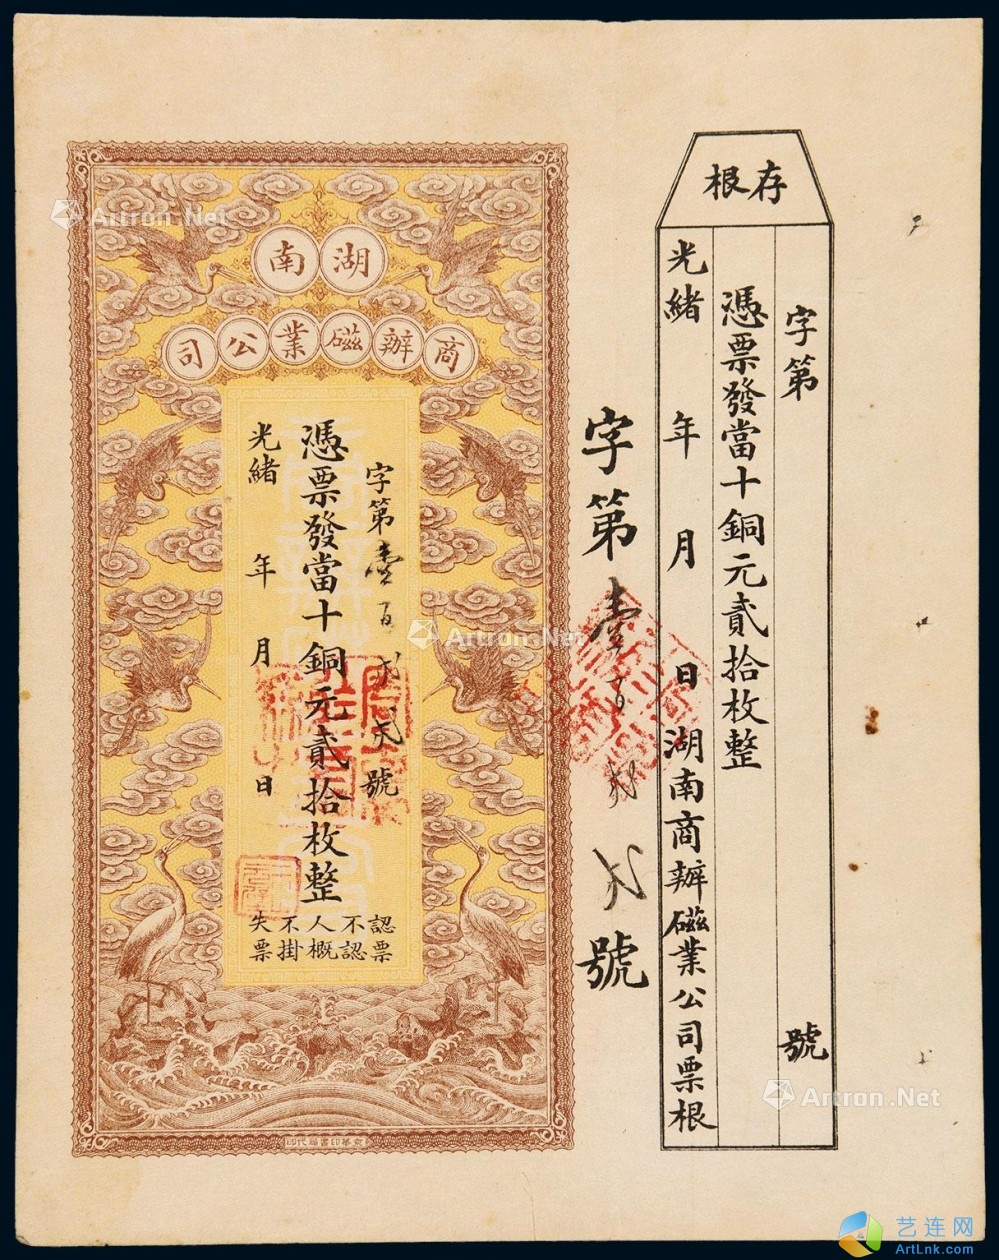 存根
字第 號
憑票發當十銅元貳拾枚整
光緒 年 月 日湖南商辦磁業公司票根
字第壹百弍弍號
湖南
商辦磁業公司
字第壹百弍弍號
憑票發當十銅元貳拾枚整
光緒 年 月 日
認票
不認
人概
不掛
失票
京華印書局代印
Artron.Net
Artron.Net
Artron.Net
艺连网
ArtLnk.com